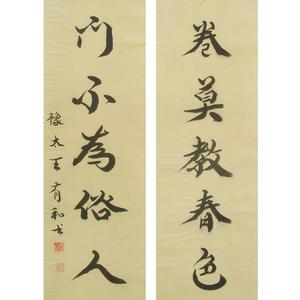 卷莫教春色
门不为俗人
豫太王有和书